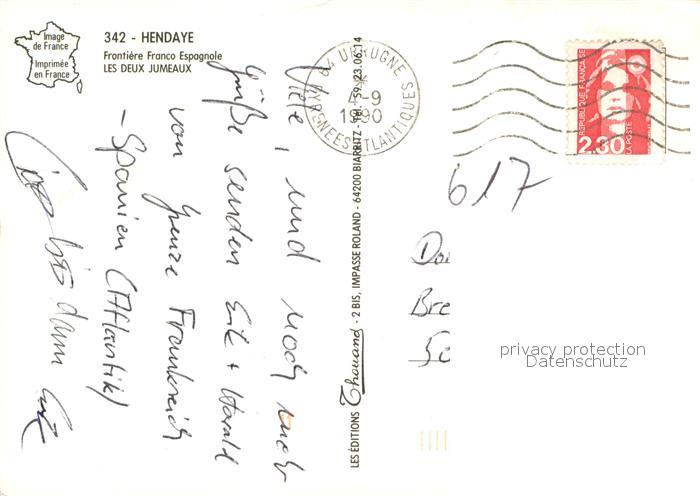 Image
de France
Imprimée
en France
342 - HENDAYE
Frontière Franco Espagnole
LES DEUX JUMEAUX
Viele, und noch mehr
Grüße senden Erik + Harald
von Grenze Frankreich
- Spanien (Atlantik)
bis dann
LES ÉDITIONS Thouand - 2 BIS, IMPASSE ROLAND - 64200 BIARRITZ - Tél. 59.23.06.14
64 URRUGNE S1
-9
1990
PYRENEES ATLANTIQUES
REPUBLIQUE FRANÇAISE
LA POSTE
2,30
617
Bre
privacy protection
Datenschutz